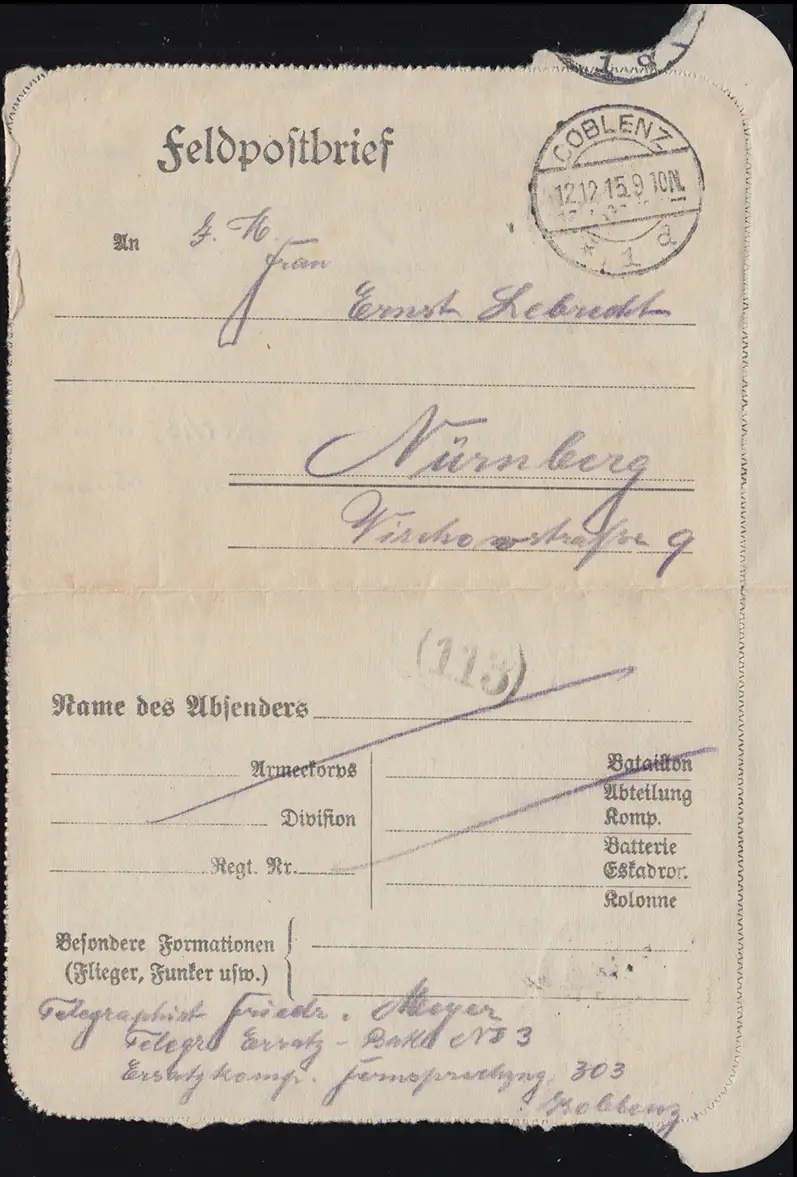 1 d
Feldpostbrief
COBLENZ
12.12.15.9 10N.
* 1 d
An
Frau
Ernst Lebrecht
Nürnberg
Wirchowstraße 9
(113)
Name des Absenders
Armeekorps
Division
Regt. Nr.
Bataillon
Abteilung
Komp.
Batterie
Eskadron.
Kolonne
Besondere Formationen
(Flieger, Funker usw.)
Telegraphist Friedr. Meyer
Telegr. Ersatz - Batl. No 3
Ersatzkomp. Fernsprechzug 303
Koblenz